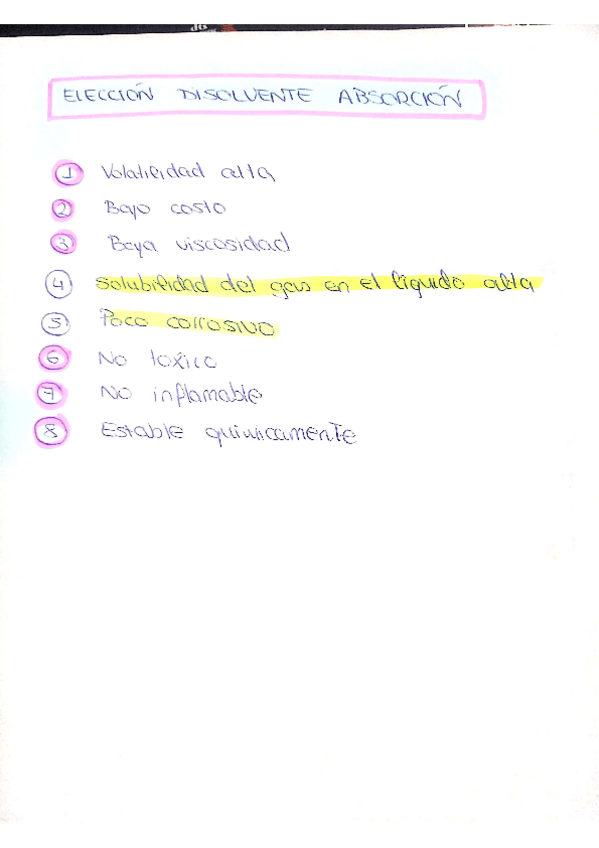 ELECCIÓN DISOLVENTE ABSORCIÓN
1 Volatilidad alta
2 Bajo costo
3 Baja viscosidad
4 solubilidad del gas en el líquido alta
5 Poco corrosivo
6 No toxico
7 No inflamable
8 Estable quimicamente